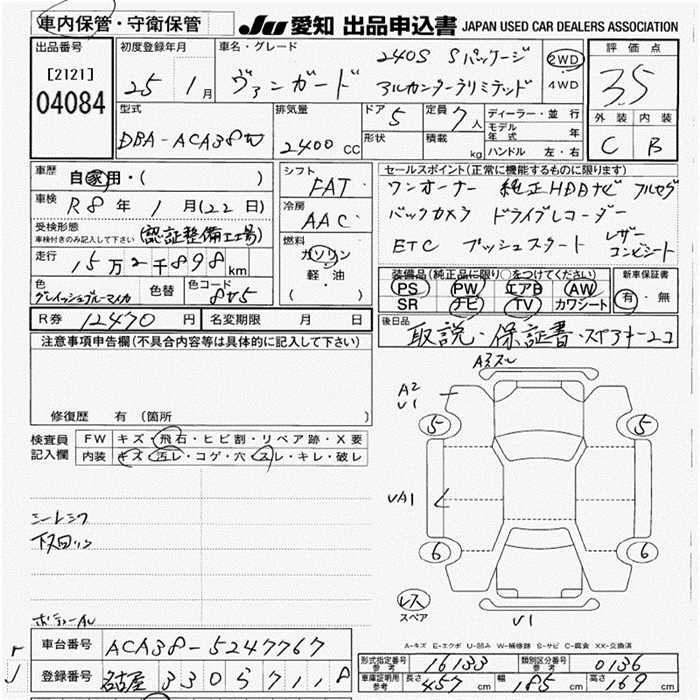 車内保管・守衛保管
JU 愛知 出品申込書 JAPAN USED CAR DEALERS ASSOCIATION
出品番号
[2121]
04084
初度登録年月
25年 1月
車名・グレード
ヴァンガード
240S Sパッケージ
アルカンターラリミテッド
2WD
・4WD
評価点
3.5
外装 内装
C B
型式
DBA-ACA38W
排気量
2400 CC
ドア 5
形状
定員 7人
積載 kg
ディーラー・並行
モデル年式 年
ハンドル 左・右
車歴
自家用・( )
車検 R8年 1月(22日)
受検形態
車検付きのみ記入して下さい
(認証整備工場)
走行 15万2千898km
色 グレイッシュブルーマイカ
色替
色コード 8W5
シフト
FAT
冷房
AAC
燃料
ガソリン
軽・油
( )
セールスポイント(正常に機能するものに限ります)
ワンオーナー 純正HDDナビ フルセグ
バックカメラ ドライブレコーダー
ETC プッシュスタート レザーコンビシート
装備品(純正品に限り○をつけてください)
PS PW エアB AW
SR ナビ TV カワシート
新車保証書
有・無
R券 12470円
名変期限 月 日
後日品
取説・保証書・スペアキー2コ
注意事項申告欄(不具合内容等は具体的に記入して下さい)
修復歴 有(箇所 )
検査員
記入欄
FW キズ・飛石・ヒビ割・リペア跡・X要
内装 キズ・汚レ・コゲ・穴・スレ・キレ・破レ
シートシワ
下回リサビ
A3スレ
A2
U1
5 5
UA1
6 6
レス
スペア
U1
A-キズ E-エクボ U-凹み W-補修跡 S-サビ C-腐食 XX-交換済
車台番号 ACA38-5247767
登録番号 名古屋 330 5711
型式指定番号
参考
16133
類別区分番号
参考
0136
車庫証明用
参考
長さ 457 cm 幅 185 cm 高さ 169 cm